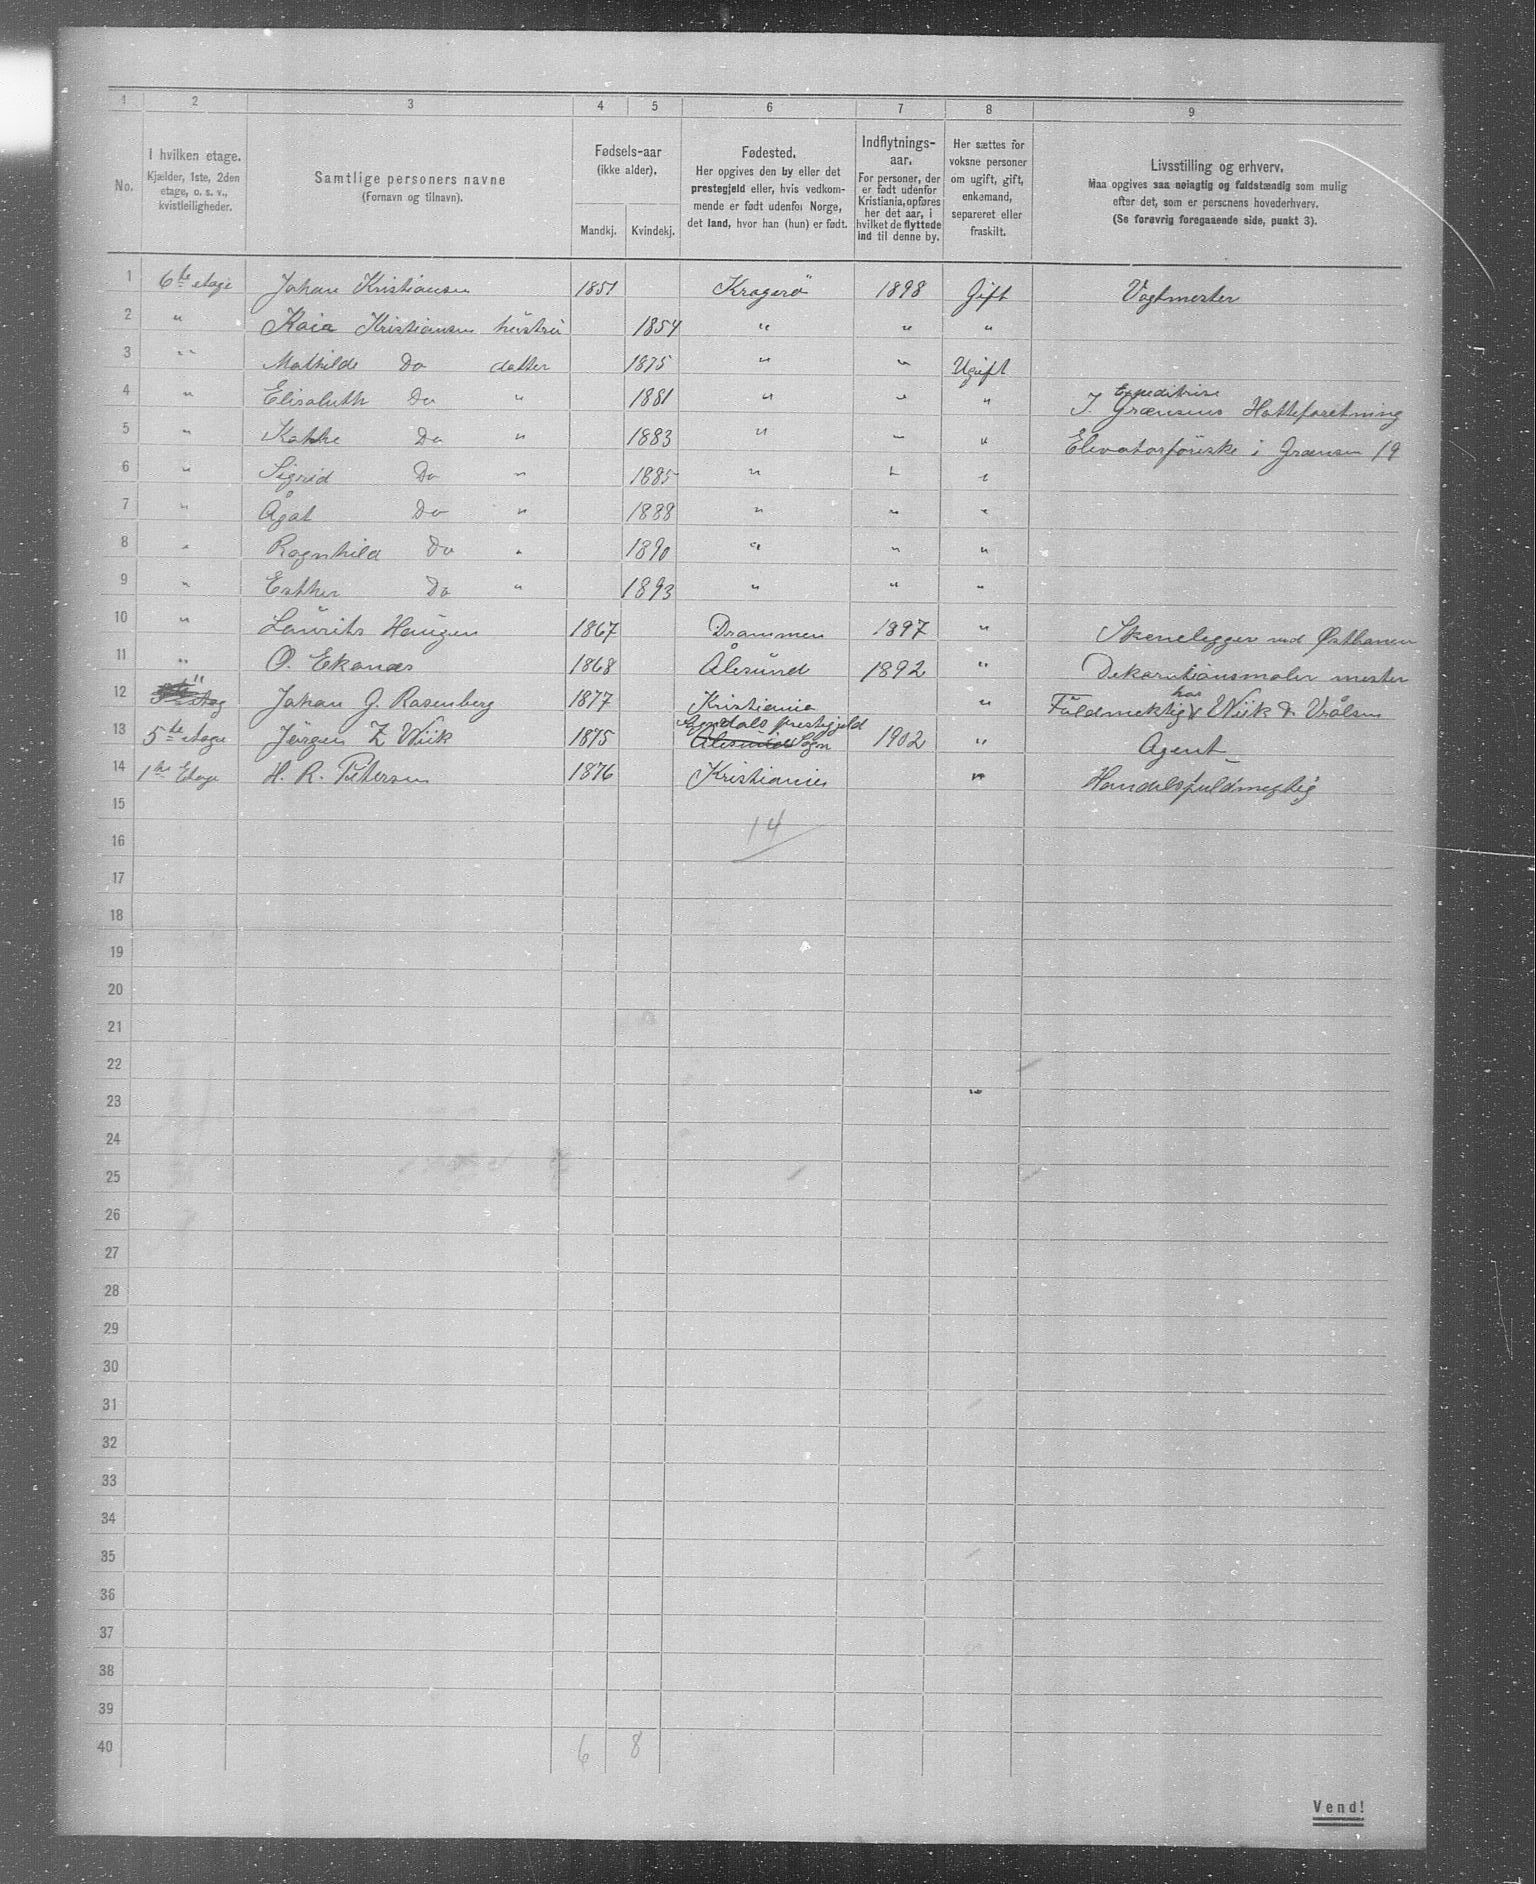 1 2 3 4 5 6 7 8 9
No. I hvilken etage. Kjælder, 1ste, 2den etage, o. s. v., kvistleiligheder.
Samtlige personers navne (Fornavn og tilnavn).
Fødsels-aar (ikke alder). Mandkj. Kvindekj.
Fødested. Her opgives den by eller det prestegjeld eller, hvis vedkommende er født udenfor Norge, det land, hvor han (hun) er født.
Indflytnings-aar. For personer, der er født udenfor Kristiania, opføres her det aar, i hvilket de flyttede ind til denne by.
Her sættes for voksne personer om ugift, gift, enkemand, separeret eller fraskilt.
Livsstilling og erhverv. Maa opgives saa nøiagtig og fuldstændig som mulig efter det, som er personens hovederhverv. (Se forøvrig foregaaende side, punkt 3).
1 6te etage Johan Kristiansen 1851 Kragerö 1898 Gift Vagtmester
2 " Kaia Kristiansen hústrú 1854 " " "
3 " Mathilde Do datter 1875 " " Ugift
4 " Elisabeth Do " 1881 " " " Expeditrise I. Grænsens Hatteforetning
5 " Kathe Do " 1883 " " " Elevatorføriske i Grænsen 19
6 " Sigrid Do " 1885 " " "
7 " Ågat Do " 1888 " " "
8 " Ragnhild Do " 1890 " " "
9 " Esther Do " 1893 " " "
10 " Laúrits Haúgen 1867 Drammen 1897 " Skinnelegger ved Østbanen
11 " O. Ekanæs 1868 Ålesúnd 1892 " Dekorationsmaler mester
12 " Johan G. Rosenberg 1877 Kristiania " Fúldmektig hos Wiik & Vrålsen
13 5te etage Jörgen Z Wiik 1875 prestegjeld Sogn 1902 " Agent
14 1ste Etage H. R. Petersen 1876 Kristiania " Handelsfuldmegtig
15
14
16
17
18
19
20
21
22
23 "
24
25
26
27
28
29
30
31
32
33
34
35
36
37
38
39
40 6 8
Vend!